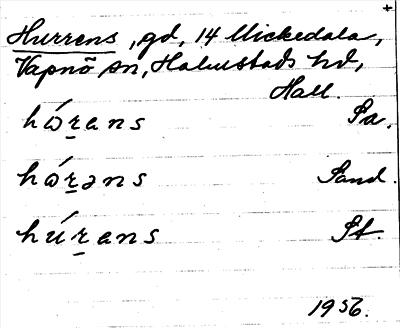 +
Hurrens, gd, 14 Mickedala,
Vapnö sn, Halmstads hd,
Hall.
hǿr̲ans Sa.
hǿr̲əns Sand.
húr̲ans St.
1956.